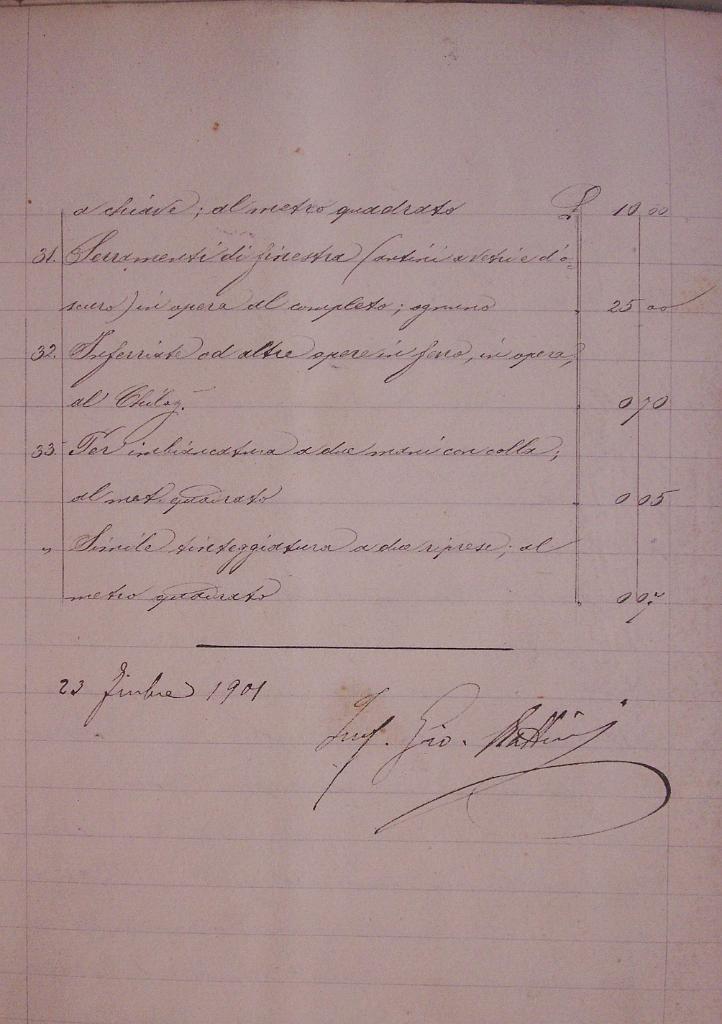 a chiave; al metro quadrato £ 10 00
31. Serramenti di finestra (antini a vetri e d'o-
scuro) in opera al completo; ognuno 25 00
32. Inferriate od altre opere in ferro, in opera,
al Chilog. 0 70
33. Per imbiancatura a due mani con colla;
al met. quadrato 0 05
„ Simile tinteggiatura a due riprese; al
metro quadrato 0 07
23 1901
Ing. Gio.